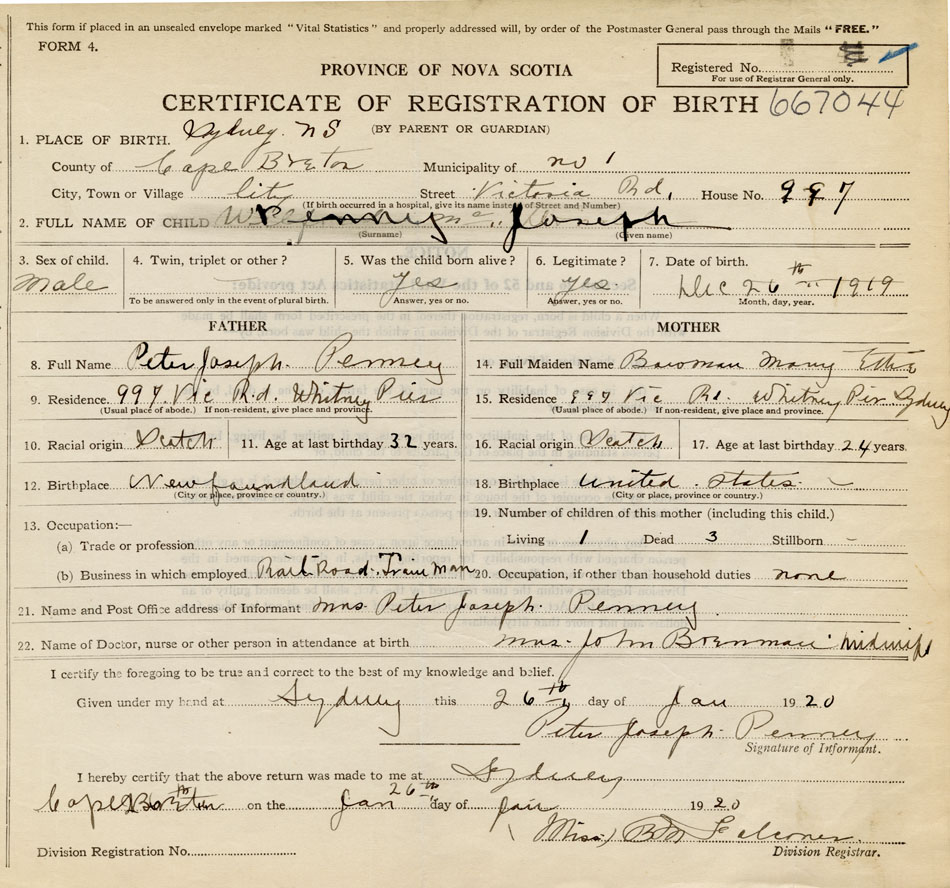 This form if placed in an unsealed envelope marked "Vital Statistics" and properly addressed will, by order of the Postmaster General pass through the Mails "FREE."
FORM 4.
Registered No.
For use of Registrar General only.
PROVINCE OF NOVA SCOTIA
CERTIFICATE OF REGISTRATION OF BIRTH 667044
(BY PARENT OR GUARDIAN)
1. PLACE OF BIRTH. Sydney. NS
County of Cape Breton Municipality of no 1
City, Town or Village City Street Victoria Rd, House No. 997
(If birth occurred in a hospital, give its name instead of Street and Number)
2. FULL NAME OF CHILD Penney Joseph
(Surname) (Given name)
3. Sex of child. 4. Twin, triplet or other? 5. Was the child born alive? 6. Legitimate? 7. Date of birth.
Male Yes Yes Dec 26th 1919
To be answered only in the event of plural birth. Answer, yes or no. Answer, yes or no. Month, day, year.
FATHER MOTHER
8. Full Name Peter Joseph. Penney 14. Full Maiden Name Bowman Mary
9. Residence. 997. Vic Rd. Whitney Pier 15. Residence 997 Vic Rd. Whitney Pier Sydney
(Usual place of abode.) If non-resident, give place and province. (Usual place of abode.) If non-resident, give place and province.
10. Racial origin Scotch 11. Age at last birthday 32 years. 16. Racial origin Scotch 17. Age at last birthday 24 years.
12. Birthplace Newfoundland 18. Birthplace United States
(City or place, province or country.) (City or place, province or country.)
13. Occupation:— 19. Number of children of this mother (including this child.)
(a) Trade or profession Living 1 Dead 3 Stillborn -
(b) Business in which employed Rail Road. Train Man 20. Occupation, if other than household duties none
21. Name and Post Office address of Informant Mrs Peter Joseph. Penney.
22. Name of Doctor, nurse or other person in attendance at birth Mrs. John midwife
I certify the foregoing to be true and correct to the best of my knowledge and belief.
Given under my hand at Sydney this 26th day of Jan 1920
Peter Joseph. Penney
Signature of Informant.
I hereby certify that the above return was made to me at Sydney
Cape Breton on the Jan 26th day of Jan 1920
(Miss) BM Falconer.
Division Registration No. Division Registrar.